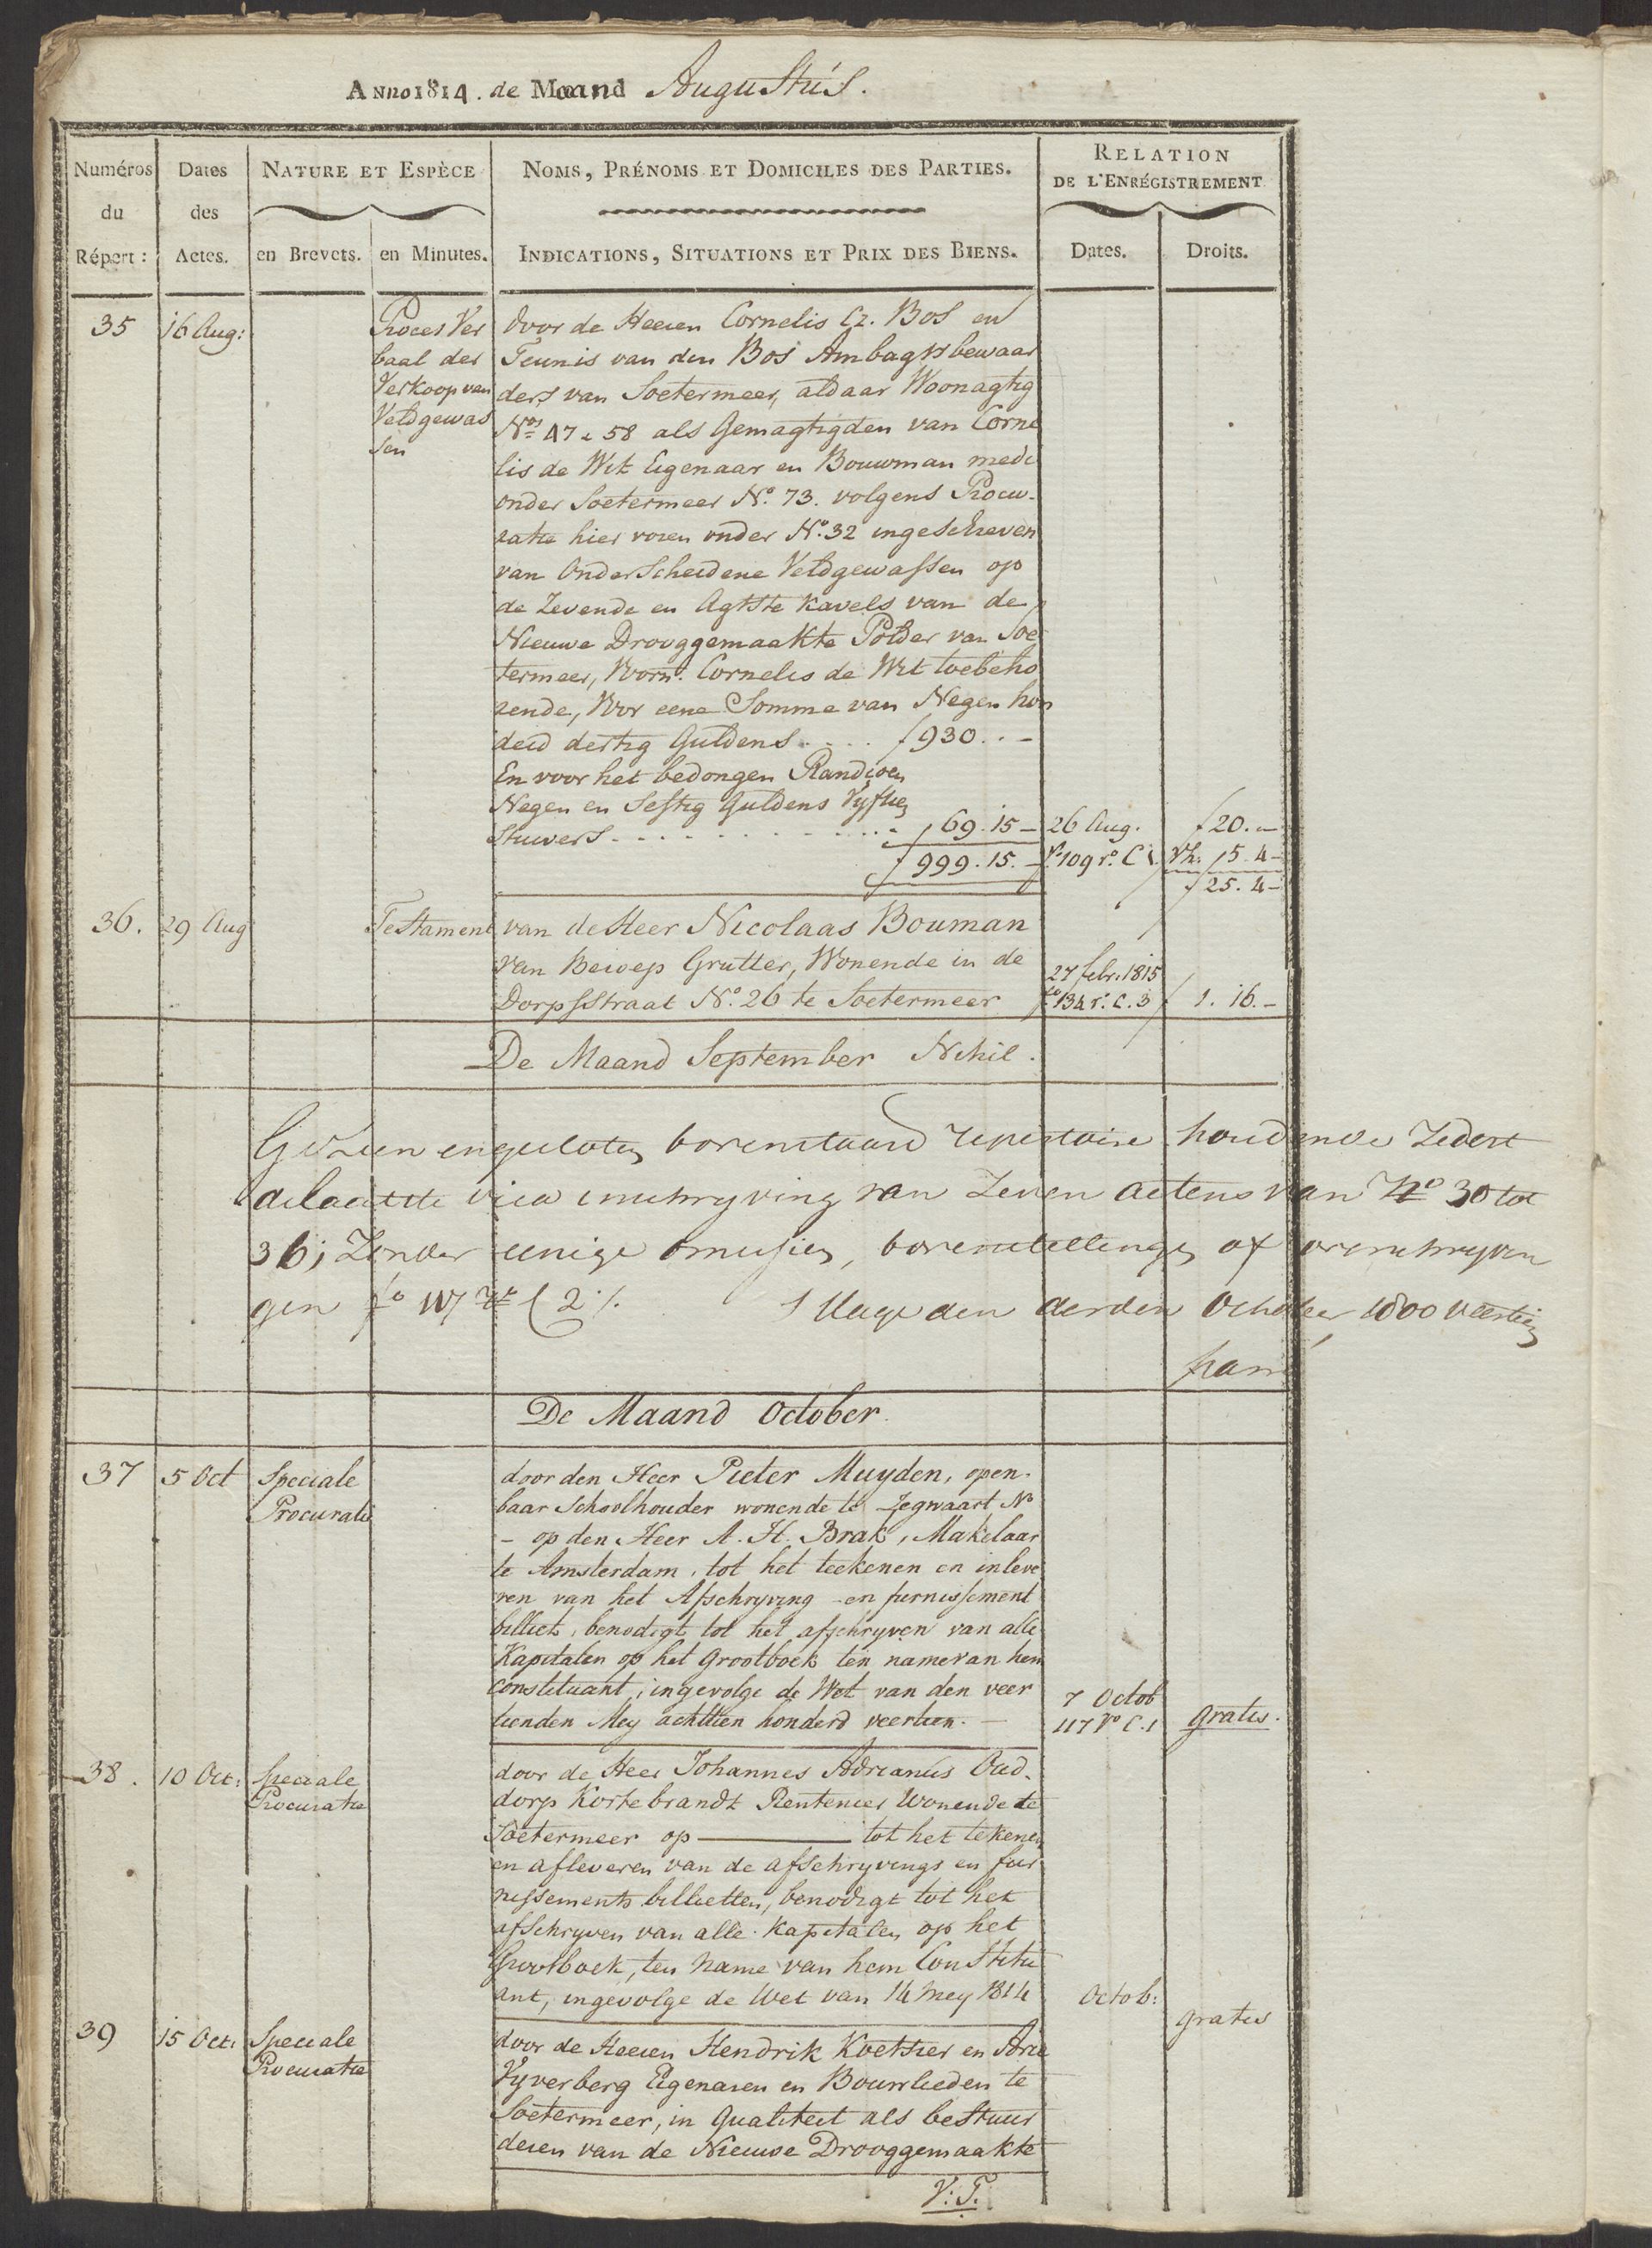 Anno 1814. de Maand Augustus.
Numéros du Répert:
Dates des Actes.
Nature et Espèce
en Brevets. en Minutes.
Noms, Prénoms et Domiciles des Parties.
Indications, Situations et Prix des Biens.
Relation de l'Enrégistrement
Dates. Droits.
35 16 Aug:
Proces Ver
baal der
Verkoop van
Veldgewas
sen
door de Heeren Cornelis Cz. Bos en
Teunis van den Bos Ambagtsbewaar
ders van Soetermeer, aldaar Woonagtig
Nos 47 & 58 als Gemagtigden van Corne
lis de Wit Eigenaar en Bouwman mede
onder Soetermeer No. 73. volgens Procu-
ratie hier voren onder No. 32 ingeschreven
van Onderscheidene Veldgewassen op
de Zevende en Agtste Kavels van de
Nieuwe Drooggemaakte Polder van Soe
termeer, Voorn. Cornelis de Wit toebeho
rende, Voor eene Somme van Negen hon
derd dertig Guldens .... f 930.. -
En voor het bedongen Randsoen
Negen en Sestig Guldens Vyftien
Stuivers ........ f 69.15 -
f 999.15. -
26 Aug.
fo 109 ro. C 1.
f 20. -
Vh. f 5.4 -
f 25.4 -
36. 29 Aug
Testament
van de Heer Nicolaas Bouman
van Beroep Grutter, Wonende in de
Dorpsstraat No. 26 te Soetermeer
27 febr. 1815
fo 134 ro. C. 3
f 1.16. -
De Maand September Nihil.
Gezien en gesloten bovenstaand repertoire houdende zedert
de laatste visa inschryving van zeven actens van No 30 tot
36; zonder eenige omissien, bovenstellingen of overschryvin
gen fo 117 Vo C 2 %. S Hage den derden October 1800 veertien
De Maand October.
37 5 Oct
Speciale
Procuratie
door den Heer Pieter Muyden, open-
baar Schoolhouder wonende te Zegwaart No
- op den Heer A. H. Brak, Makelaar
te Amsterdam, tot het teekenen en inleve
ren van het Afschryving- en furnissement
billiet, benodigt tot het afschryven van alle
Kapitalen op het Grootboek ten name van hem
constituant, ingevolge de Wet van den veer
tienden Mey achttien honderd veertien. -
7 Octob
117 Vo C. 1
gratis.
38. 10 Oct:
Speciale
Procuratie
door de Heer Johannes Adrianus Oud-
dorp Kortebrandt Rentenier Wonende te
Soetermeer op ——— tot het tekenen
en afleveren van de afschryvings en fur
nissements billietten, benodigt tot het
afschryven van alle Kapitalen op het
Grootboek, ten name van hem Constitu
ant, ingevolge de Wet van 14 Mey 1814
Octob:
gratis
39 15 Oct:
Speciale
Procuratie
door de Heeren Hendrik Koetsier en Arie
Vyverberg Eigenaren en Bouwlieden te
Soetermeer, in Qualiteit als bestuur
deren van de Nieuwe Drooggemaakte
V: T.